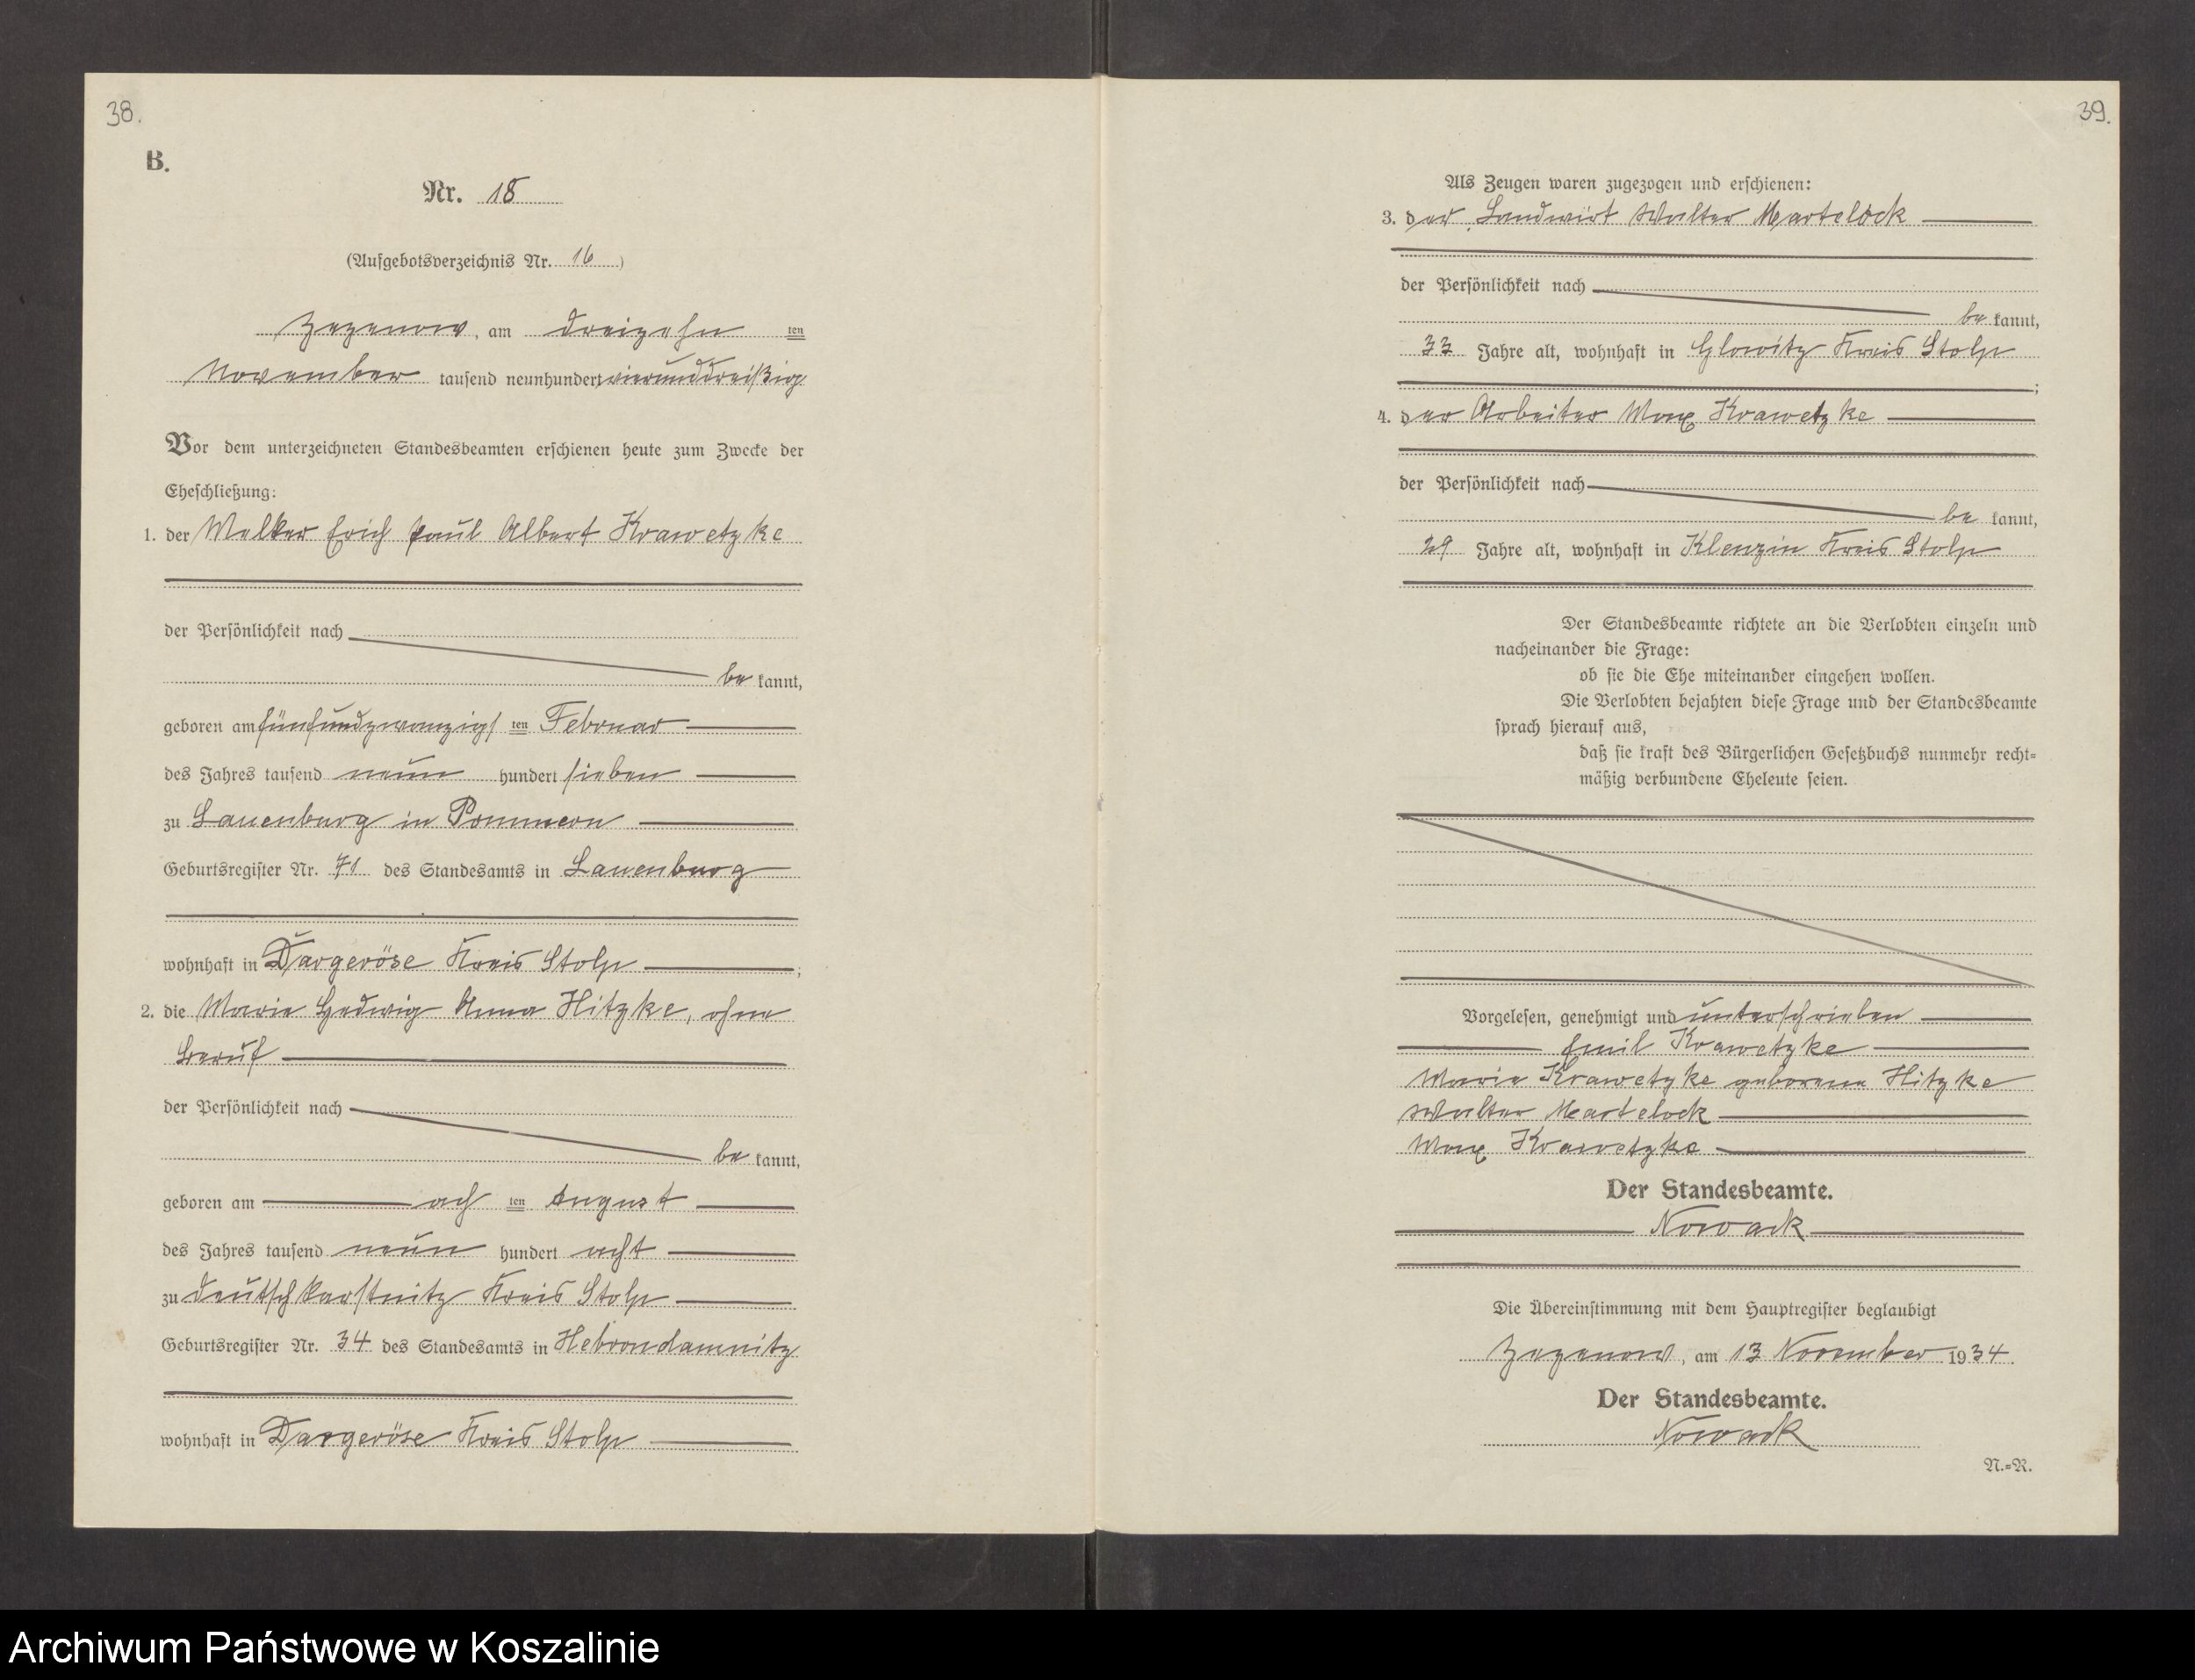 38.
B.
Nr. 18
(Aufgebotsverzeichnis Nr. 16)
Zezenow, am dreizehn ten
November tausend neunhundert vierunddreißig
Vor dem unterzeichneten Standesbeamten erschienen heute zum Zwecke der
Eheschließung:
1. der Melker Erich Paul Albert Krawetzke
der Persönlichkeit nach
be kannt,
geboren am fünfundzwanzigs ten Februar
des Jahres tausend neun hundert sieben
zu Lauenburg in Pommern
Geburtsregister Nr. 71 des Standesamts in Lauenburg
wohnhaft in Dargeröse Kreis Stolp ;
2. die Marie Hedwig Anna Hitzke, ohne
Beruf
der Persönlichkeit nach
be kannt,
geboren am ach ten August
des Jahres tausend neun hundert acht
zu Deutschkarstnitz Kreis Stolp
Geburtsregister Nr. 34 des Standesamts in Hebrondamnitz
wohnhaft in Dargeröse Kreis Stolp
39.
Als Zeugen waren zugezogen und erschienen:
3. der Landwirt Walter Martelock
der Persönlichkeit nach
be kannt,
33 Jahre alt, wohnhaft in Glowitz Kreis Stolp
;
4. der Arbeiter Max Krawetzke
der Persönlichkeit nach
be kannt,
29 Jahre alt, wohnhaft in Klenzin Kreis Stolp
Der Standesbeamte richtete an die Verlobten einzeln und
nacheinander die Frage:
ob sie die Ehe miteinander eingehen wollen.
Die Verlobten bejahten diese Frage und der Standesbeamte
sprach hierauf aus,
daß sie kraft des Bürgerlichen Gesetzbuchs nunmehr recht-
mäßig verbundene Eheleute seien.
Vorgelesen, genehmigt und unterschrieben
Emil Krawetzke
Marie Krawetzke geborene Hitzke
Walter Martelock
Max Krawetzke
Der Standesbeamte.
Nowack
Die Übereinstimmung mit dem Hauptregister beglaubigt
Zezenow, am 13 November 1934.
Der Standesbeamte.
Nowack
N.-R.
Archiwum Państwowe w Koszalinie